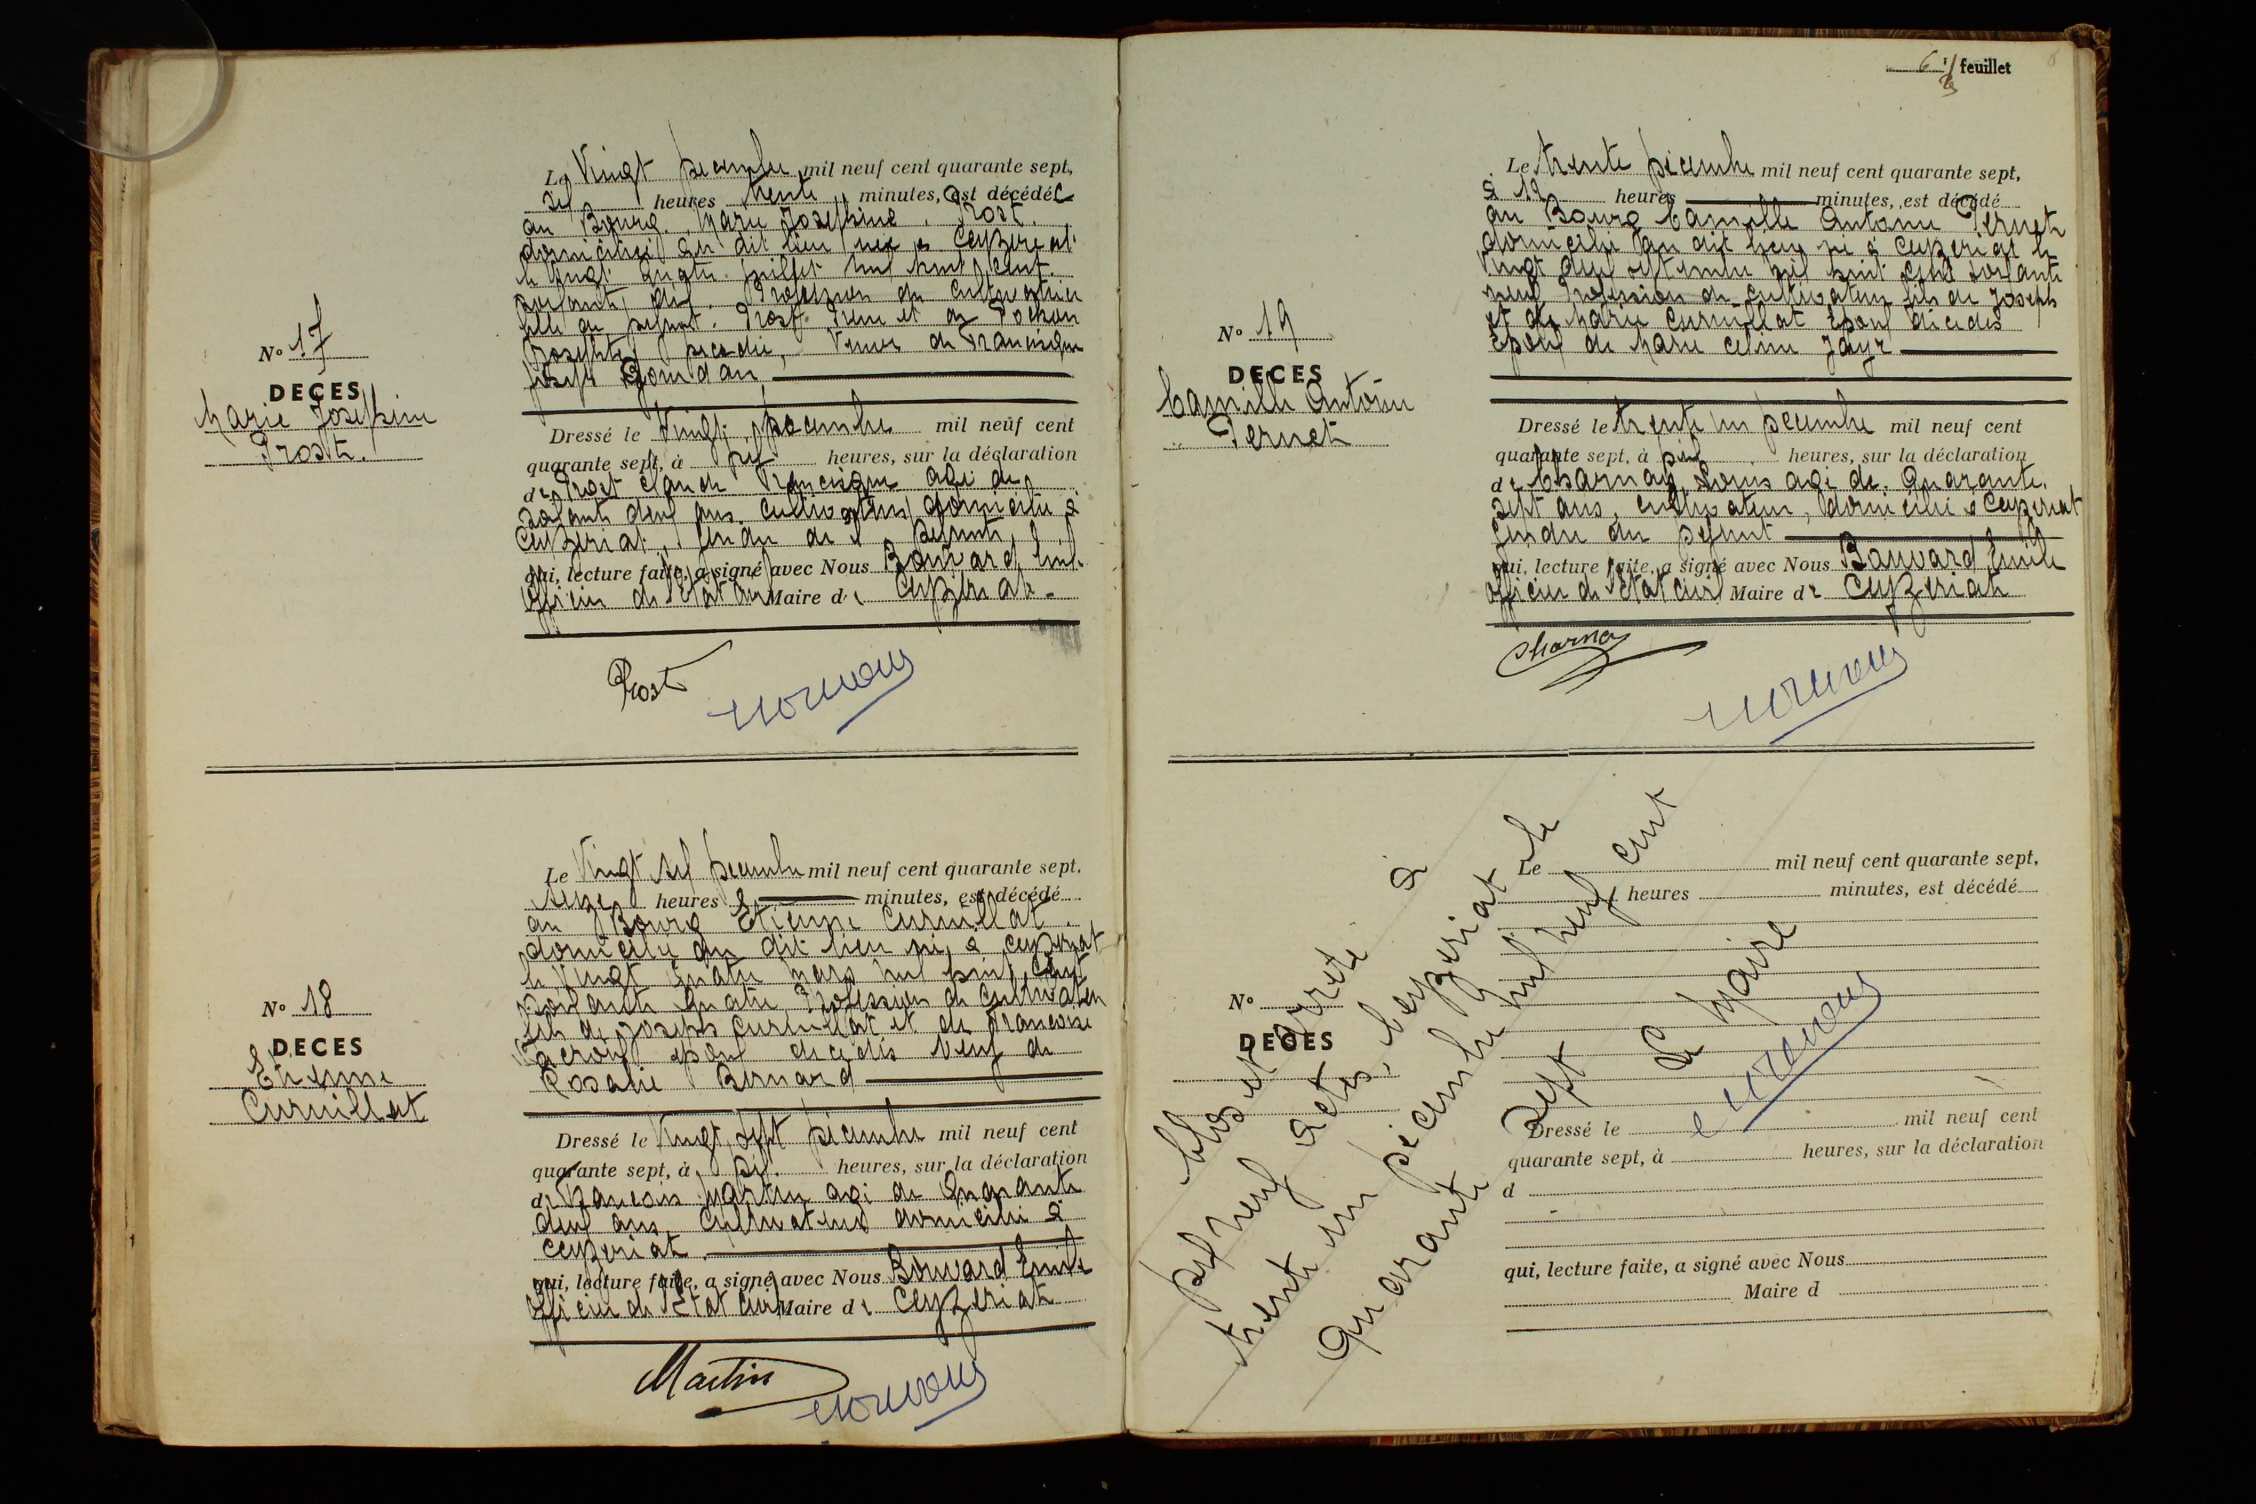 Le Vingt Décembre mil neuf cent quarante sept,
dix heures trente minutes, est décédée
au Bourg, Marie Josephine Prost
domiciliée au dit lieu née à Ceyzeriat
le Vingt Quatre juillet mil huit cent
soixante deux. Profession de cultivatrice
fille de défunt Prost et de Pochon
Josephte décédée, Veuve de Francisque
Joseph Gourdan
N° 17
DECES
Marie Josephine
Prost.
Dressé le Vingt Décembre mil neuf cent
quarante sept, à dix heures, sur la déclaration
de Prost Claude Francisque agé de
soixante deux ans cultivateur domicilié à
Ceyzeriat, de la défunte
qui, lecture faite, a signé avec Nous Bouvard Emile
officier de l'Etat Civil Maire de Ceyzeriat
Prost
Le Vingt six Décembre mil neuf cent quarante sept.
seize heures minutes, est décédé
au Bourg Etienne Curnillat
domicilié au dit lieu né à Ceyzeriat
le Vingt Quatre Mars mil huit cent
soixante Quatre Profession de Cultivateur
fils de Joseph Curnillat et de Francoise
époux décédés Veuf de
Rosalie Bernard
N° 18
DECES
Etienne
Curnillat
Dressé le Vingt sept Décembre mil neuf cent
quarante sept, à dix heures, sur la déclaration
de Francois Martin agé de Quarante
deux ans cultivateur domicilié à
Ceyzeriat
qui, lecture faite, a signé avec Nous Bouvard Emile
officier de l'Etat Civil Maire de Ceyzeriat
Martin
6 feuillet
Le trente Décembre mil neuf cent quarante sept,
à 19 heures minutes, est décédé
au Bourg Camille Antoine Pernet
domicilié au dit lieu né à Ceyzeriat le
Vingt deux septembre mil huit cent soixante
neuf Profession de cultivateur fils de Joseph
et de Marie Curnillat époux décédés
époux de Marie Celine Jayr
N° 19
DECES
Camille Antoine
Pernet
Dressé le trente un Décembre mil neuf cent
quarante sept, à dix heures, sur la déclaration
de Charnay Louis agé de Quarante
sept ans, cultivateur, domicilié à Ceyzeriat
Gendre du défunt
qui, lecture faite, a signé avec Nous Bouvard Emile
officier de l'Etat Civil Maire de Ceyzeriat
Charnay
Le mil neuf cent quarante sept,
heures minutes, est décédé
N°
DECES
Dressé le mil neuf cent
quarante sept, à heures, sur la déclaration
d
qui, lecture faite, a signé avec Nous
Maire d
Clos et arrété à
dix neuf actes, Ceyzeriat le
trente un Décembre mil neuf cent
Quarante sept
Le Maire